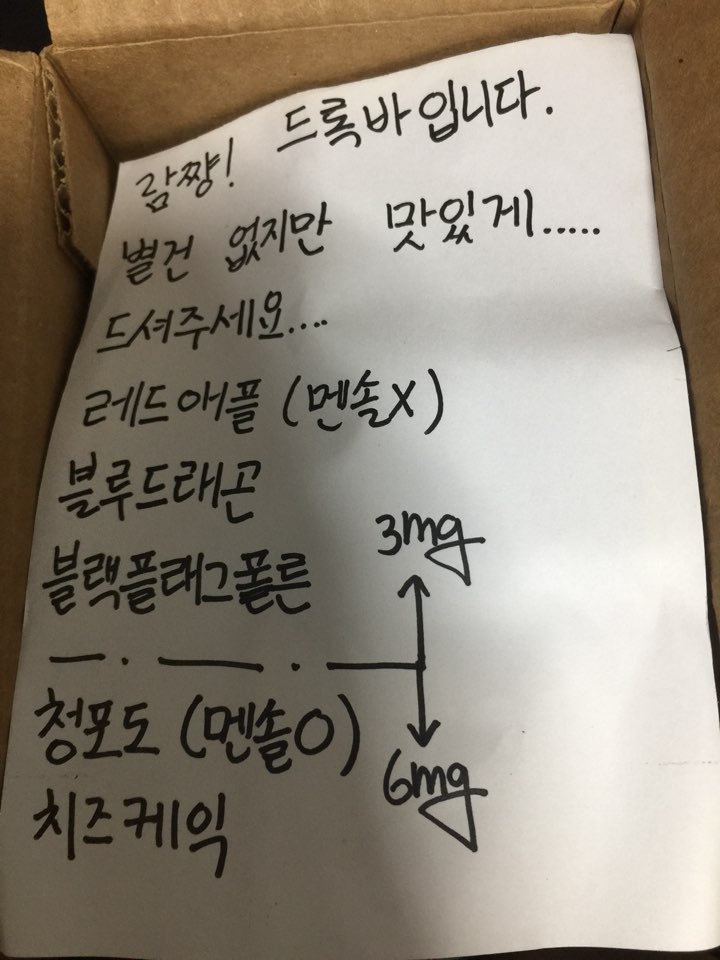 람쨩! 드록바입니다.
별건 없지만 맛있게.....
드셔주세요....
레드애플 (멘솔X)
블루드래곤
3mg
블랙플래그폴른
청포도 (멘솔O)
6mg
치즈케익